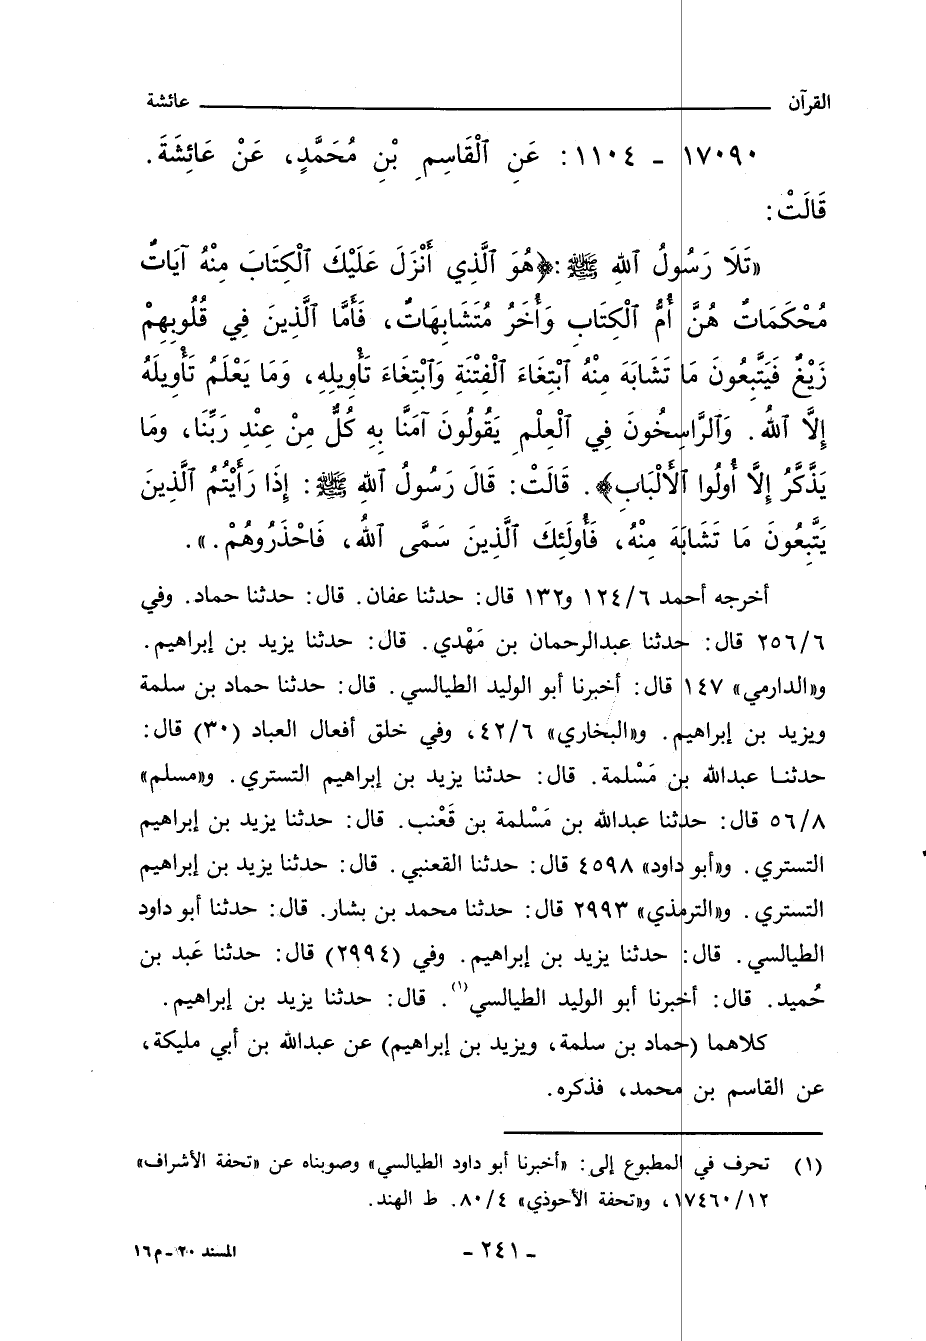 القرآن ــــــــــــ عائشة
١٧٠٩٠ ـ ١١٠٤ : عَنِ ٱلْقَاسِمِ بْنِ مُحَمَّدٍ، عَنْ عَائِشَةَ.
قَالَتْ:
«تَلَا رَسُولُ ٱللهِ ﷺ: ﴿هُوَ ٱلَّذِي أَنْزَلَ عَلَيْكَ ٱلْكِتَابَ مِنْهُ آيَاتٌ
مُحْكَمَاتٌ هُنَّ أُمُّ ٱلْكِتَابِ وَأُخَرُ مُتَشَابِهَاتٌ، فَأَمَّا ٱلَّذِينَ فِي قُلُوبِهِمْ
زَيْغٌ فَيَتَّبِعُونَ مَا تَشَابَهَ مِنْهُ ٱبْتِغَاءَ ٱلْفِتْنَةِ وَٱبْتِغَاءَ تَأْوِيلِهِ، وَمَا يَعْلَمُ تَأْوِيلَهُ
إِلَّا ٱللهُ. وَٱلرَّاسِخُونَ فِي ٱلْعِلْمِ يَقُولُونَ آمَنَّا بِهِ كُلٌّ مِنْ عِنْدِ رَبِّنَا، ومَا
يَذَّكَّرُ إِلَّا أُولُوا ٱلأَلْبَابِ﴾. قَالَتْ: قَالَ رَسُولُ ٱللهِ ﷺ: إِذَا رَأَيْتُمُ ٱلَّذِينَ
يَتَّبِعُونَ مَا تَشَابَهَ مِنْهُ، فَأُولَئِكَ ٱلَّذِينَ سَمَّى ٱللهُ، فَاحْذَرُوهُمْ.».
أخرجه أحمد ١٢٤/٦ و١٣٢ قال: حدثنا عفان. قال: حدثنا حماد. وفي
٢٥٦/٦ قال: حدثنا عبدالرحمان بن مَهْدي. قال: حدثنا يزيد بن إبراهيم.
و«الدارمي» ١٤٧ قال: أخبرنا أبو الوليد الطيالسي. قال: حدثنا حماد بن سلمة
ويزيد بن إبراهيم. و«البخاري» ٤٢/٦، وفي خلق أفعال العباد (٣٠) قال:
حدثنا عبدالله بن مَسْلمة. قال: حدثنا يزيد بن إبراهيم التستري. و«مسلم»
٥٦/٨ قال: حدثنا عبدالله بن مَسْلمة بن قَعْنب. قال: حدثنا يزيد بن إبراهيم
التستري. و«أبو داود» ٤٥٩٨ قال: حدثنا القعنبي. قال: حدثنا يزيد بن إبراهيم
التستري. و«الترمذي» ٢٩٩٣ قال: حدثنا محمد بن بشار. قال: حدثنا أبو داود
الطيالسي. قال: حدثنا يزيد بن إبراهيم. وفي (٢٩٩٤) قال: حدثنا عَبد بن
حُميد. قال: أخبرنا أبو الوليد الطيالسي(١). قال: حدثنا يزيد بن إبراهيم.
كلاهما (حماد بن سلمة، ويزيد بن إبراهيم) عن عبدالله بن أبي مليكة،
عن القاسم بن محمد، فذكره.
(١) تحرف في المطبوع إلى: «أخبرنا أبو داود الطيالسي» وصوبناه عن «تحفة الأشراف»
١٧٤٦٠/١٢، و«تحفة الأحوذي» ٨٠/٤. ط الهند.
ـ ٢٤١ ـ
المسند ٢٠ـم١٦